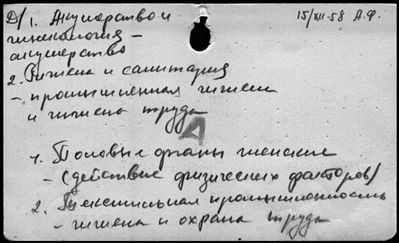 Д/ 1. Акушерство и 15/XII-58 А.Ф.
гинекология -
акушерство
2. Гигиена и санитария
- промышленная гигиена
и гигиена труда
Д
1. Половые органы женские
- (действие физических факторов)
2. Текстильная промышленность
- гигиена и охрана труда